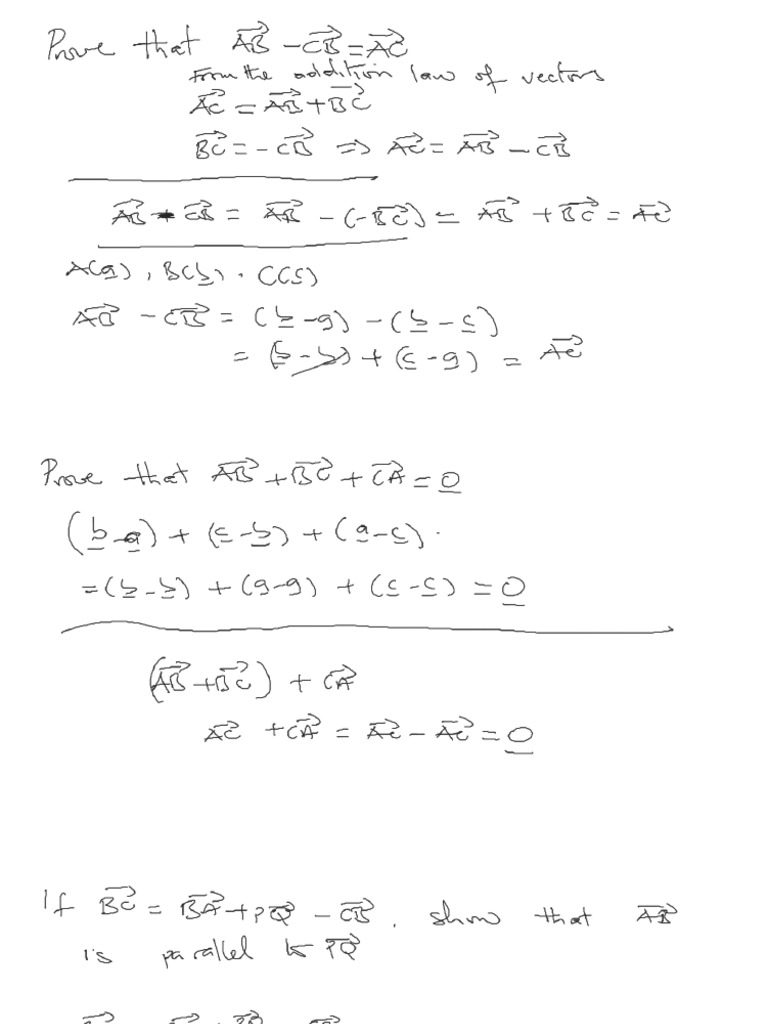 Prove that AB⃗ - CB⃗ = AC⃗
From the addition law of vectors
AC⃗ = AB⃗ + BC⃗
BC⃗ = - CB⃗ => AC⃗ = AB⃗ - CB⃗
AB⃗ - CB⃗ = AB⃗ - (-BC⃗) = AB⃗ + BC⃗ = AC⃗
A(a), B(b). C(c)
AB⃗ - CB⃗ = (b - a) - (b - c)
= (b - b) + (c - a) = AC⃗
Prove that AB⃗ + BC⃗ + CA⃗ = 0
(b - a) + (c - b) + (a - c).
= (b - b) + (a - a) + (c - c) = 0
(AB⃗ + BC⃗) + CA⃗
AC⃗ + CA⃗ = AC⃗ - AC⃗ = 0
If BC⃗ = BA⃗ + PQ⃗ - CB⃗. show that AB⃗
is parallel to PQ⃗